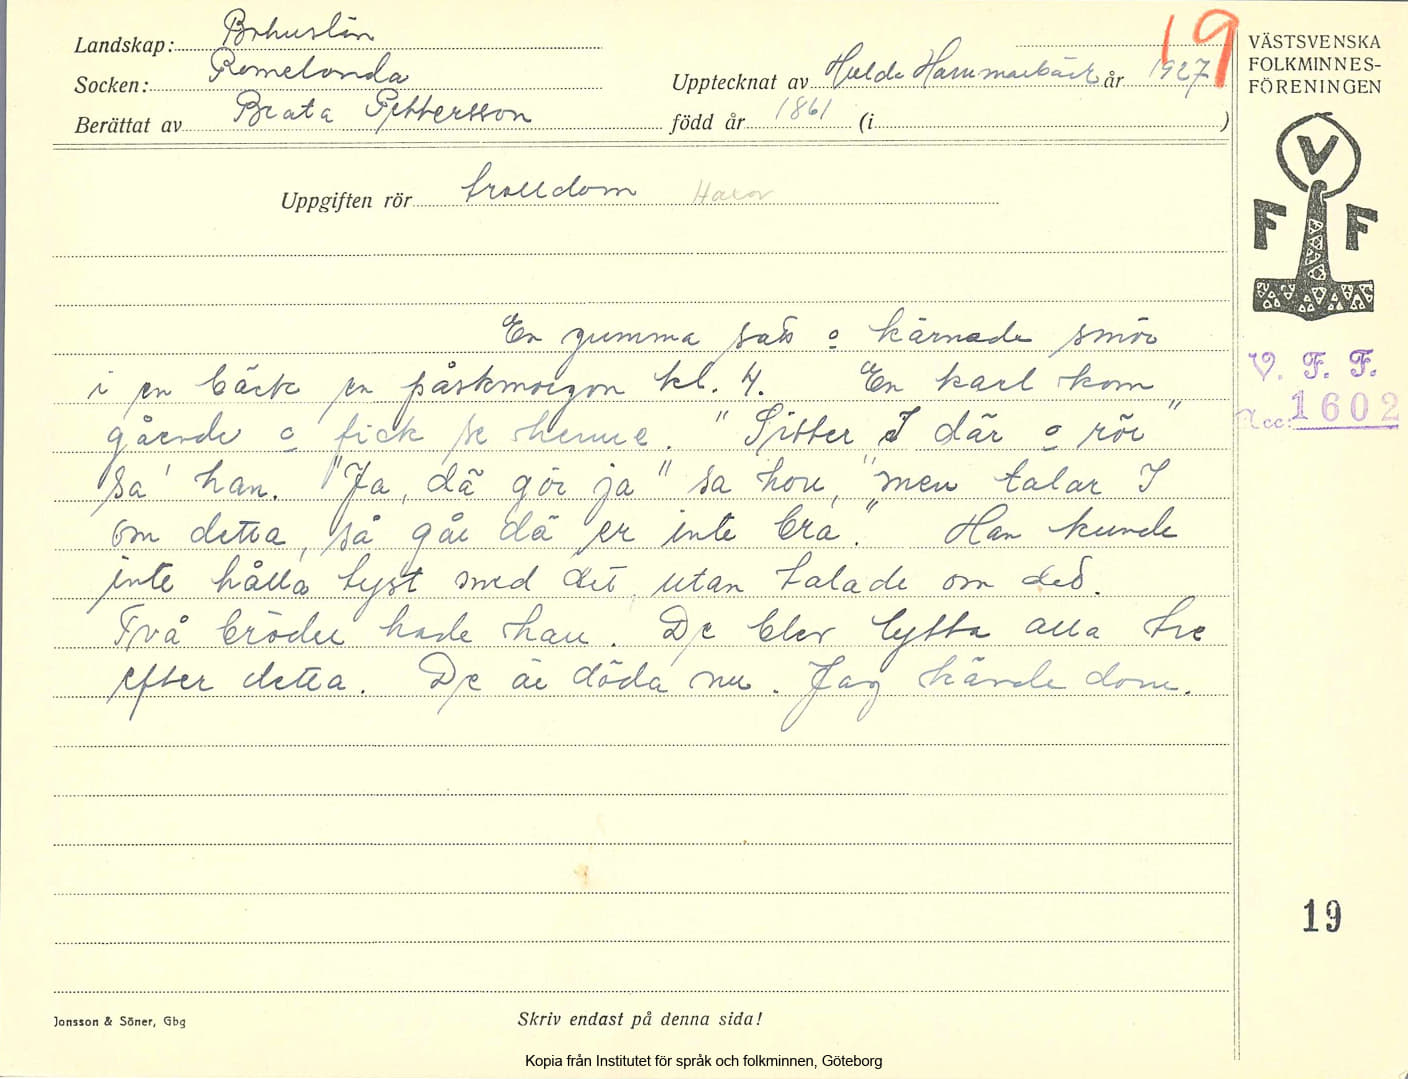 Landskap: Bohuslän
Socken: Romelanda
Berättat av Beata Pettersson
Upptecknat av Hulda Hammarbäck år 1927
född år 1861 (i )
19
VÄSTSVENSKA
FOLKMINNES-
FÖRENINGEN
V
F F
Uppgiften rör trolldom Häxor
En gumma satt o kärnade smör
i en bäck en påskmorgon kl. 4. En karl kom
gående o fick se henne. "Sitter I där o rör"
sa' han. "Ja, dä gör ja" sa hon, "men talar I
om detta, så går dä er inte bra." Han kunde
inte hålla tyst med det, utan talade om det.
Två bröder hade han. De blev lytta alla tre
efter detta. De är döda nu. Jag kände dom.
V. F. F.
Acc: 1602
19
Jonsson & Söner, Gbg
Skriv endast på denna sida!
Kopia från Institutet för språk och folkminnen, Göteborg